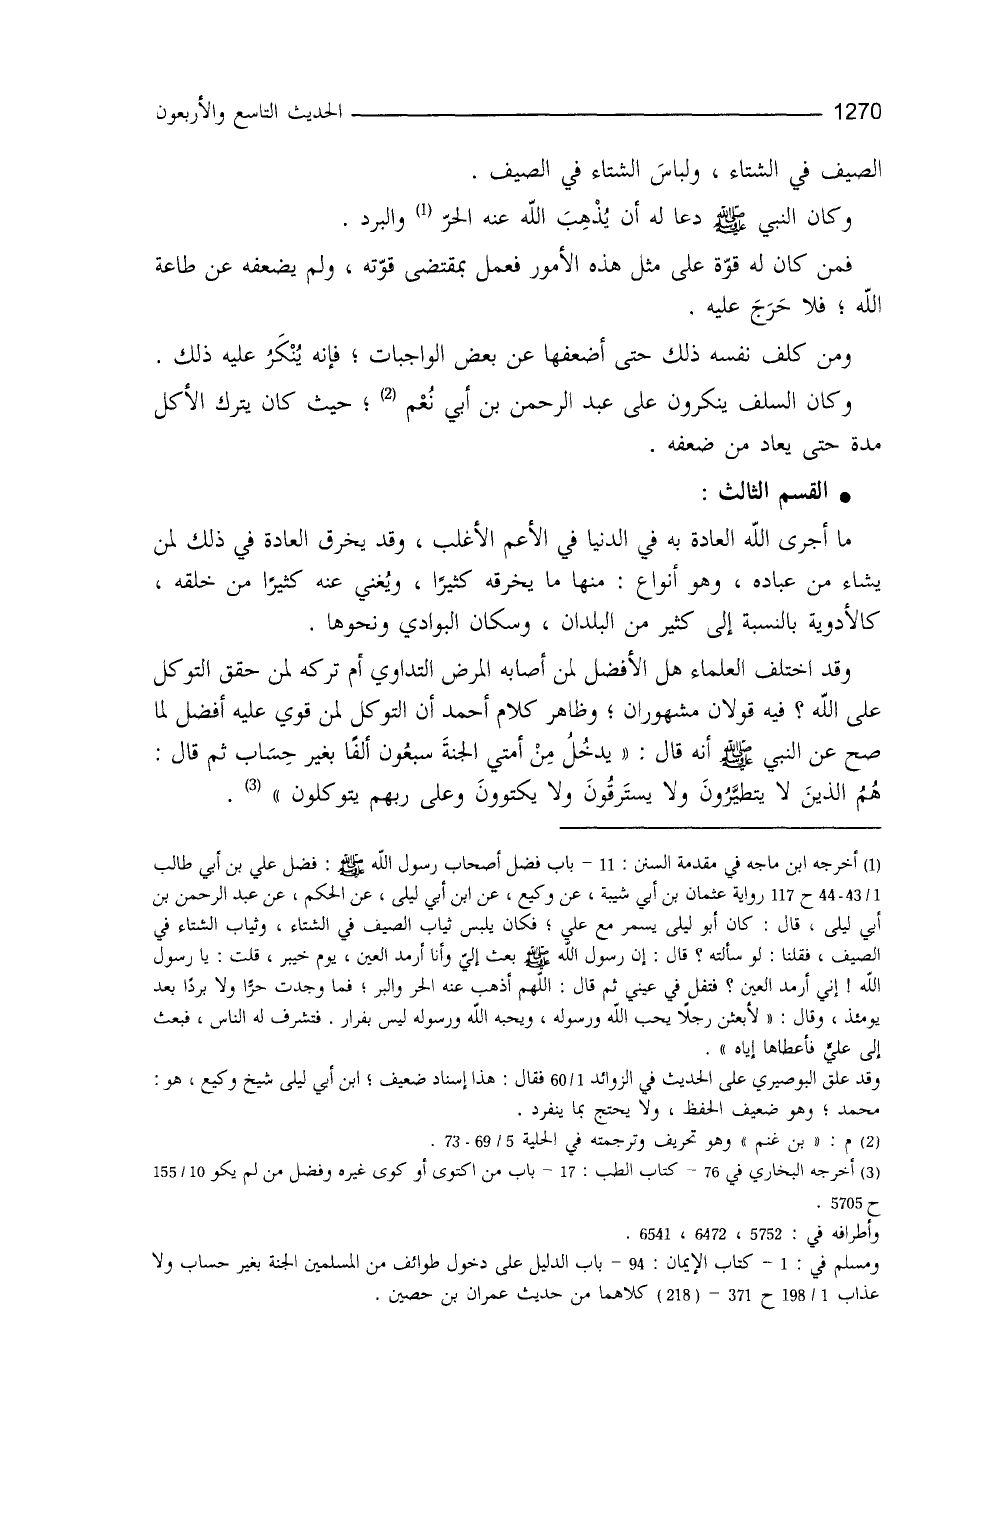 1270 الحديث التاسع والأربعون
الصيف في الشتاء ، ولباسَ الشتاء في الصيف .
وكان النبي ﷺ دعا له أن يُذْهِبَ اللّه عنه الحرّ (1) والبرد .
فمن كان له قوّة على مثل هذه الأمور فعمل بمقتضى قوّته ، ولم يضعفه عن طاعة
اللّه ؛ فلا حَرَجَ عليه .
ومن كلف نفسه ذلك حتى أضعفها عن بعض الواجبات ؛ فإنه يُنْكَرُ عليه ذلك .
وكان السلف ينكرون على عبد الرحمن بن أبي نُعْم (2) ؛ حيث كان يترك الأكل
مدة حتى يعاد من ضعفه .
● القسم الثالث :
ما أجرى اللّه العادة به في الدنيا في الأعم الأغلب ، وقد يخرق العادة في ذلك لمن
يشاء من عباده ، وهو أنواع : منها ما يخرقه كثيرًا ، ويُغني عنه كثيرًا من خلقه ،
كالأدوية بالنسبة إلى كثير من البلدان ، وسكان البوادي ونحوها .
وقد اختلف العلماء هل الأفضل لمن أصابه المرض التداوي أم تركه لمن حقق التوكل
على اللّه ؟ فيه قولان مشهوران ؛ وظاهر كلام أحمد أن التوكل لمن قوي عليه أفضل لما
صح عن النبي ﷺ أنه قال : « يدخُلُ مِنْ أمتي الجنةَ سبعُون ألفًا بغير حِسَاب ثم قال :
هُمُ الذينَ لا يتطيَّرُونَ ولا يسترقُونَ ولا يكتوونَ وعلى ربهم يتوكلون » (3) .
(1) أخرجه ابن ماجه في مقدمة السنن : 11 – باب فضل أصحاب رسول اللّه ﷺ : فضل علي بن أبي طالب
1/43-44 ح 117 رواية عثمان بن أبي شيبة ، عن وكيع ، عن ابن أبي ليلى ، عن الحكم ، عن عبد الرحمن بن
أبي ليلى ، قال : كان أبو ليلى يسمر مع علي ؛ فكان يلبس ثياب الصيف في الشتاء ، وثياب الشتاء في
الصيف ، فقلنا : لو سألته ؟ قال : إن رسول اللّه ﷺ بعث إليّ وأنا أرمد العين ، يوم خيبر ، قلت : يا رسول
اللّه ! إني أرمد العين ؟ فتفل في عيني ثم قال : اللّهم أذهب عنه الحر والبر ؛ فما وجدت حرًّا ولا بردًا بعد
يومئذ ، وقال : « لأبعثن رجلًا يحب اللّه ورسوله ، ويحبه اللّه ورسوله ليس بفرار . فتشرف له الناس ، فبعث
إلى عليٍّ فأعطاها إياه » .
وقد علق البوصيري على الحديث في الزوائد 1/60 فقال : هذا إسناد ضعيف ؛ ابن أبي ليلى شيخ وكيع ، هو :
محمد ؛ وهو ضعيف الحفظ ، ولا يحتج بما ينفرد .
(2) م : « بن غنم » وهو تحريف وترجمته في الحلية 5 / 69 - 73 .
(3) أخرجه البخاري في 76 – كتاب الطب : 17 – باب من اكتوى أو كوى غيره وفضل من لم يكو 10 / 155
ح 5705 .
وأطرافه في : 5752 ، 6472 ، 6541 .
ومسلم في : 1 – كتاب الإيمان : 94 – باب الدليل على دخول طوائف من المسلمين الجنة بغير حساب ولا
عذاب 1 / 198 ح 371 – ( 218 ) كلاهما من حديث عمران بن حصين .